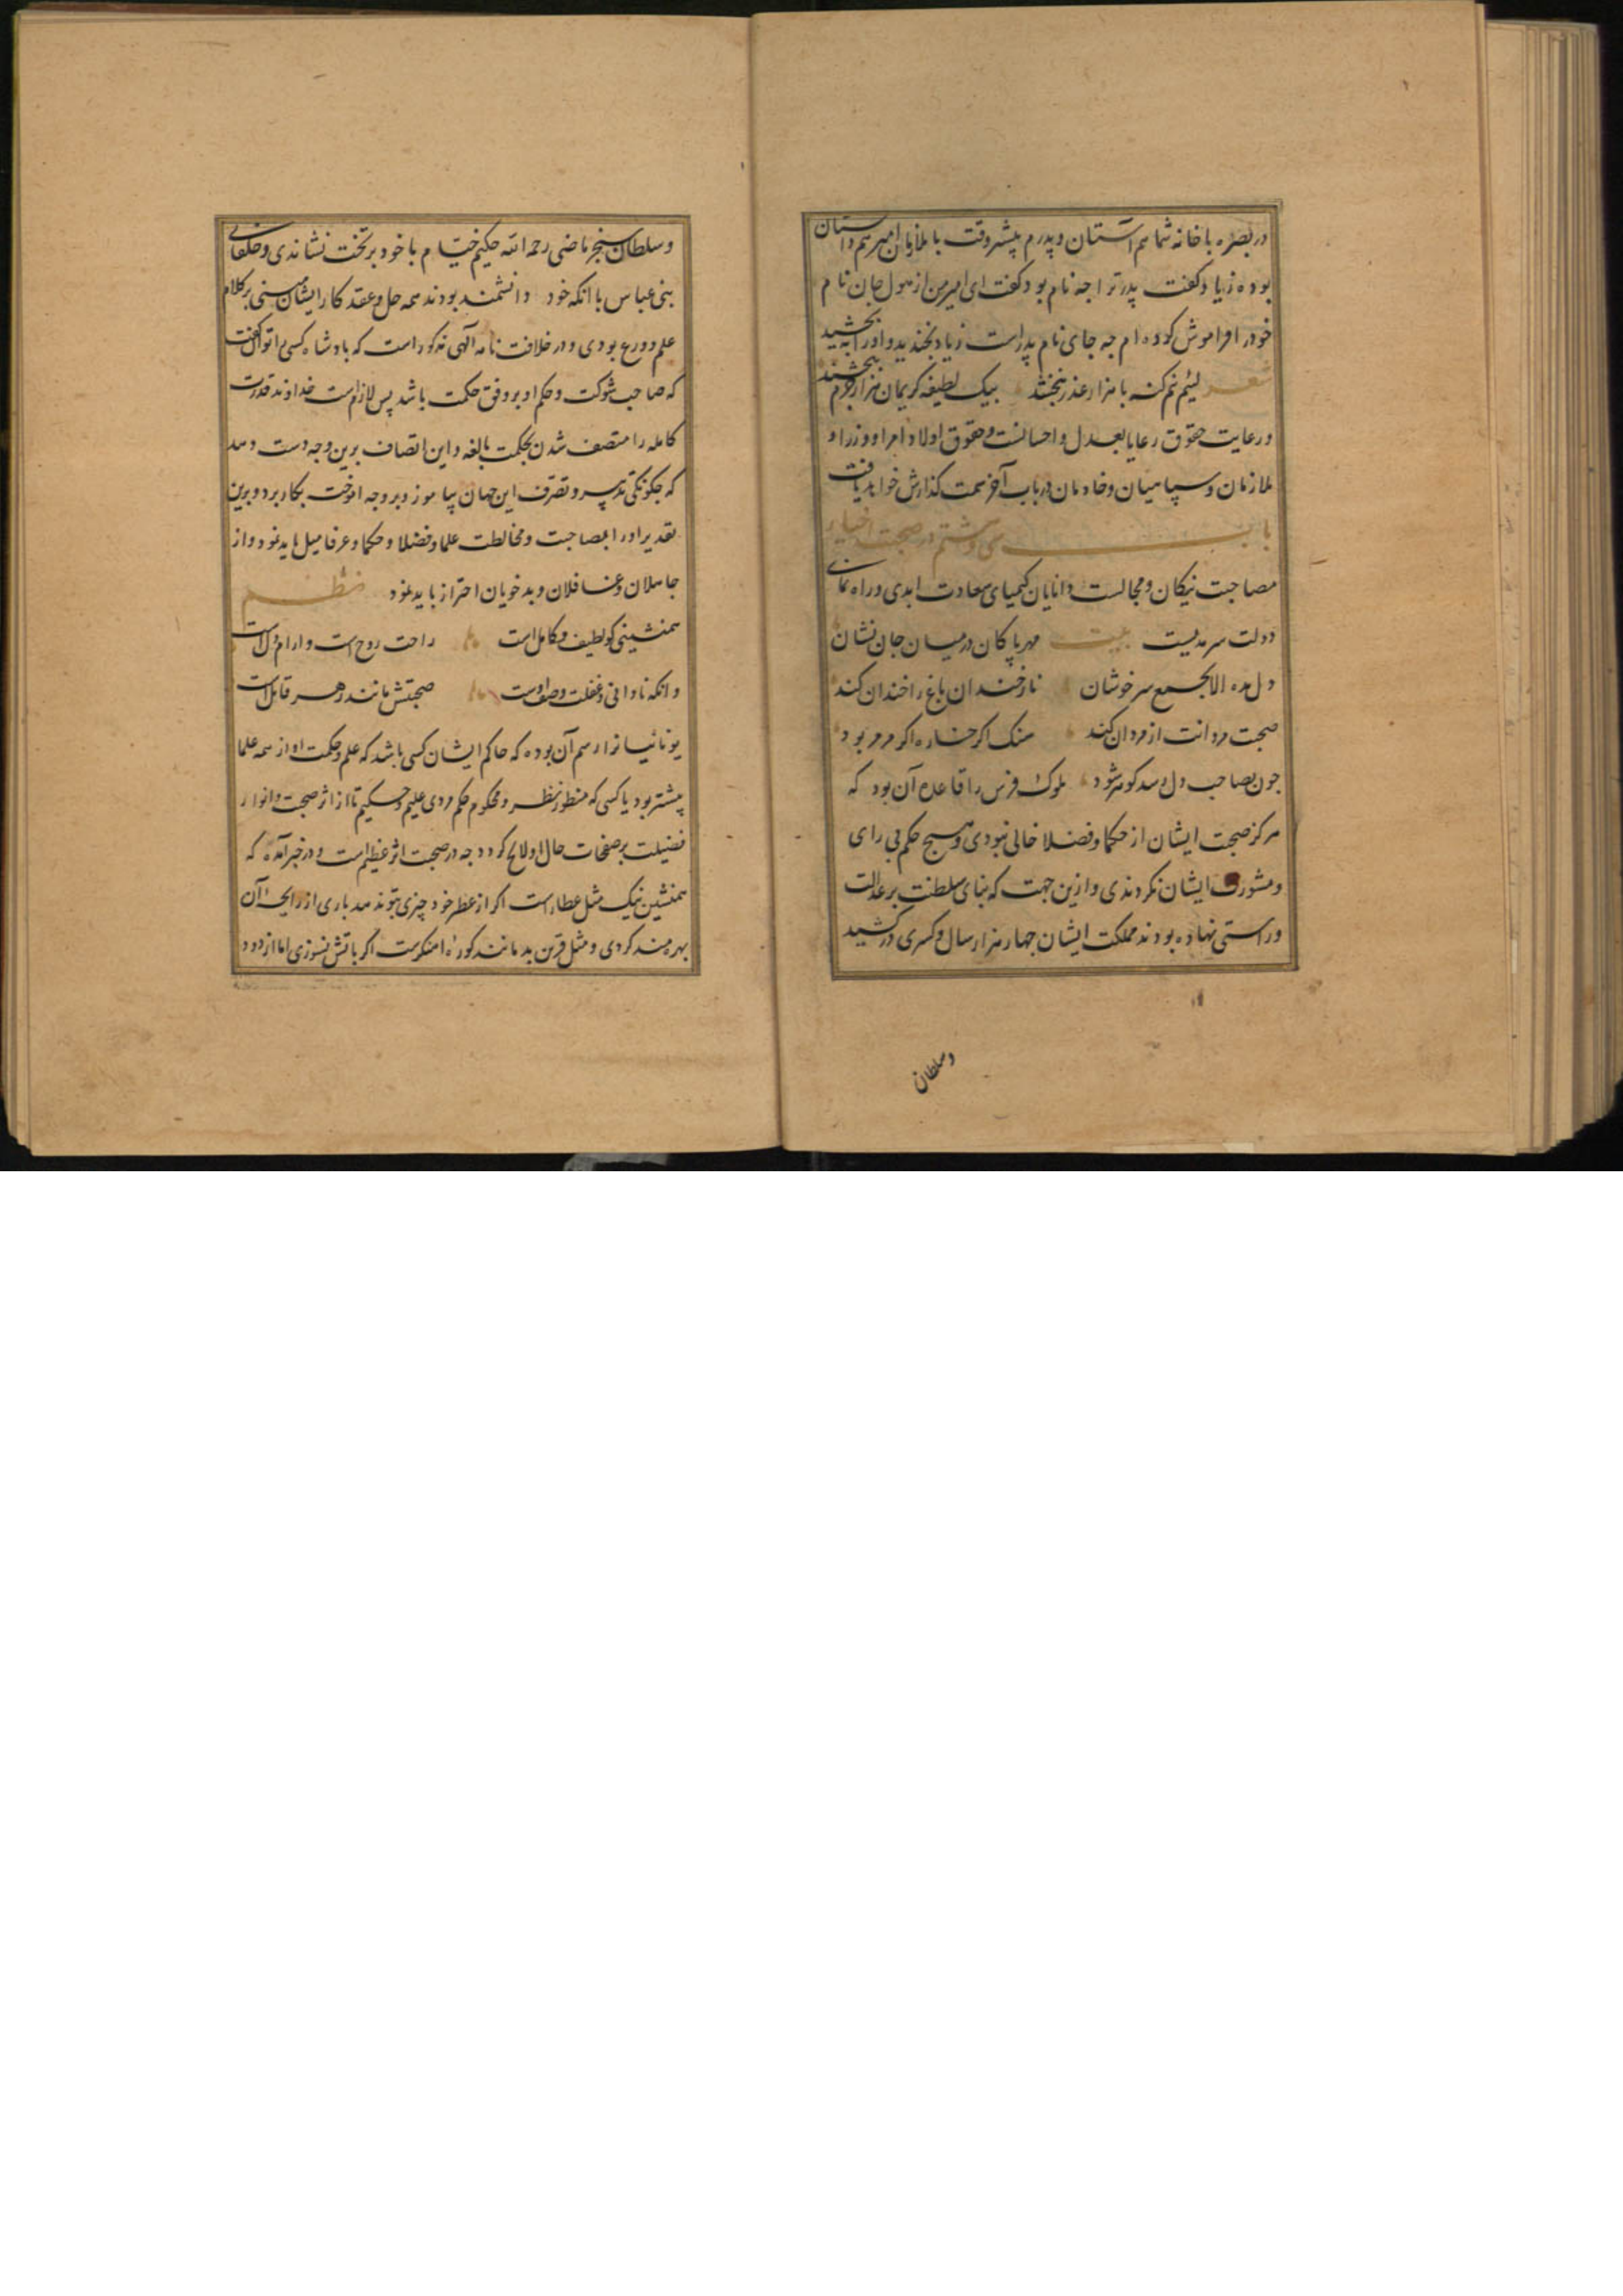 در بصره با خانه شما هم آستان و پدرم پیشر وقت با ملازمان امیر هم داستان
بوده زیاد گفت پدر ترا چه نام بود گفت ای امیر من از هول جان نام
خود را فراموش کرده ام چه جای نام پدر است زیاد بخندید و او را ببخشید
شعر لئیم نیم گنه با هزار عذر نبخشد بیک لطیفه کریمان هزار جرم ببخشند
و رعایت حقوق رعایا بعدل و احسانست و حقوق اولاد و امرا و وزرا و
ملازمان و سپاهیان و خادمان در باب آخر سمت گذارش خواهد یافت
باب سی و هشتم در صحبت اخیار
مصاحبت نیکان و مجالست دانایان کیمیای سعادت ابدی و راه نمای
دولت سرمدیست بیت مهر پاکان در میسان جان نشان
دل مده الا بجمع سرخوشان نار خندان باغ را خندان کند
صحبت مردانت از مردان کند سنک اکر خاره اکر مرمر بود
جون بصاحب دل رسد کوهر شود ملوک فرس را قاعده آن بود که
هرکز صحبت ایشان از حکما و فضلا خالی نبودی و هیچ حکم بی رای
و مشورت ایشان نکردندی و ازین جهت که بنای سلطنت بر عدالت
و راستی نهاده بودند مملکت ایشان چهار هزار سال و کسری در کشید
و سلطان
و سلطان سنجر ماضی رحمه الله حکیم خیام با خود بر تخت نشاندی و خلفای
بنی عباس با انکه خود دانشمند بودند همه حل و عقد کار ایشان مبنی بر کلام
علم و ورع بودی و در خلافت نامه آلهی مذکور است که بادشاه کسی را توان گفت
که صاحب شوکت و حکم او بر وفق حکمت باشد پس لازم است خداوند قدرت
کامله را متصف شدن بحکمت بالغه و این اتصاف برین وجه دست دهد
که جکونکی تدبیر و تصرف این جهان بیاموزد و بر وجه اموخت بکار برد و برین
تقدیر او را بمصاحبت و مخالطت علما و فضلا و حکما و عرفا میل باید نمود و از
جاهلان و غافلان و بدخویان احتراز باید نمود نظم
همنشینی کو لطیف و کامل است راحت روح است و ارام دل است
وانکه نادانی و غفلت وصف اوست صحبتش مانند زهر قاتل است
یونانیانرا رسم آن بوده که حاکم ایشان کسی باشد که علم و حکمت او از همه علما
پیشتر بود یا کسی که منظور نظر و محکوم حکم مردی علیم و حکیم تا از اثر صحبت و انوار
فضیلت بر صفحات حال او لایح کردد جه در صحبت اثر عظیم است و در خبر آمده که
همنشین نیک مثل عطار است اکر از عطر خود چیزی بتو ندهد باری از رایحه آن
بهره مند کردی و مثل قرین بد مانند کوره اهنکرست اکر باتش نسوزی اما از دود